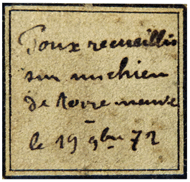 Poux recueillis
sur un chien
de terre neuve
le 19 9bre 72